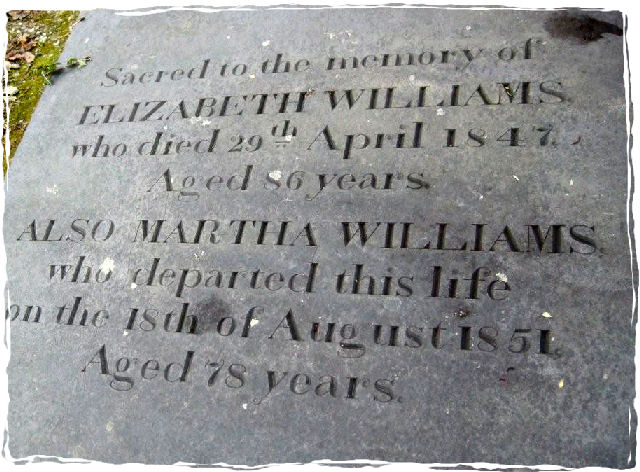 Sacred to the memory of
ELIZABETH WILLIAMS
who died 29th April 1847.
Aged 86 years.
ALSO MARTHA WILLIAMS.
who departed this life
on the 18th of August 1851.
Aged 78 years.